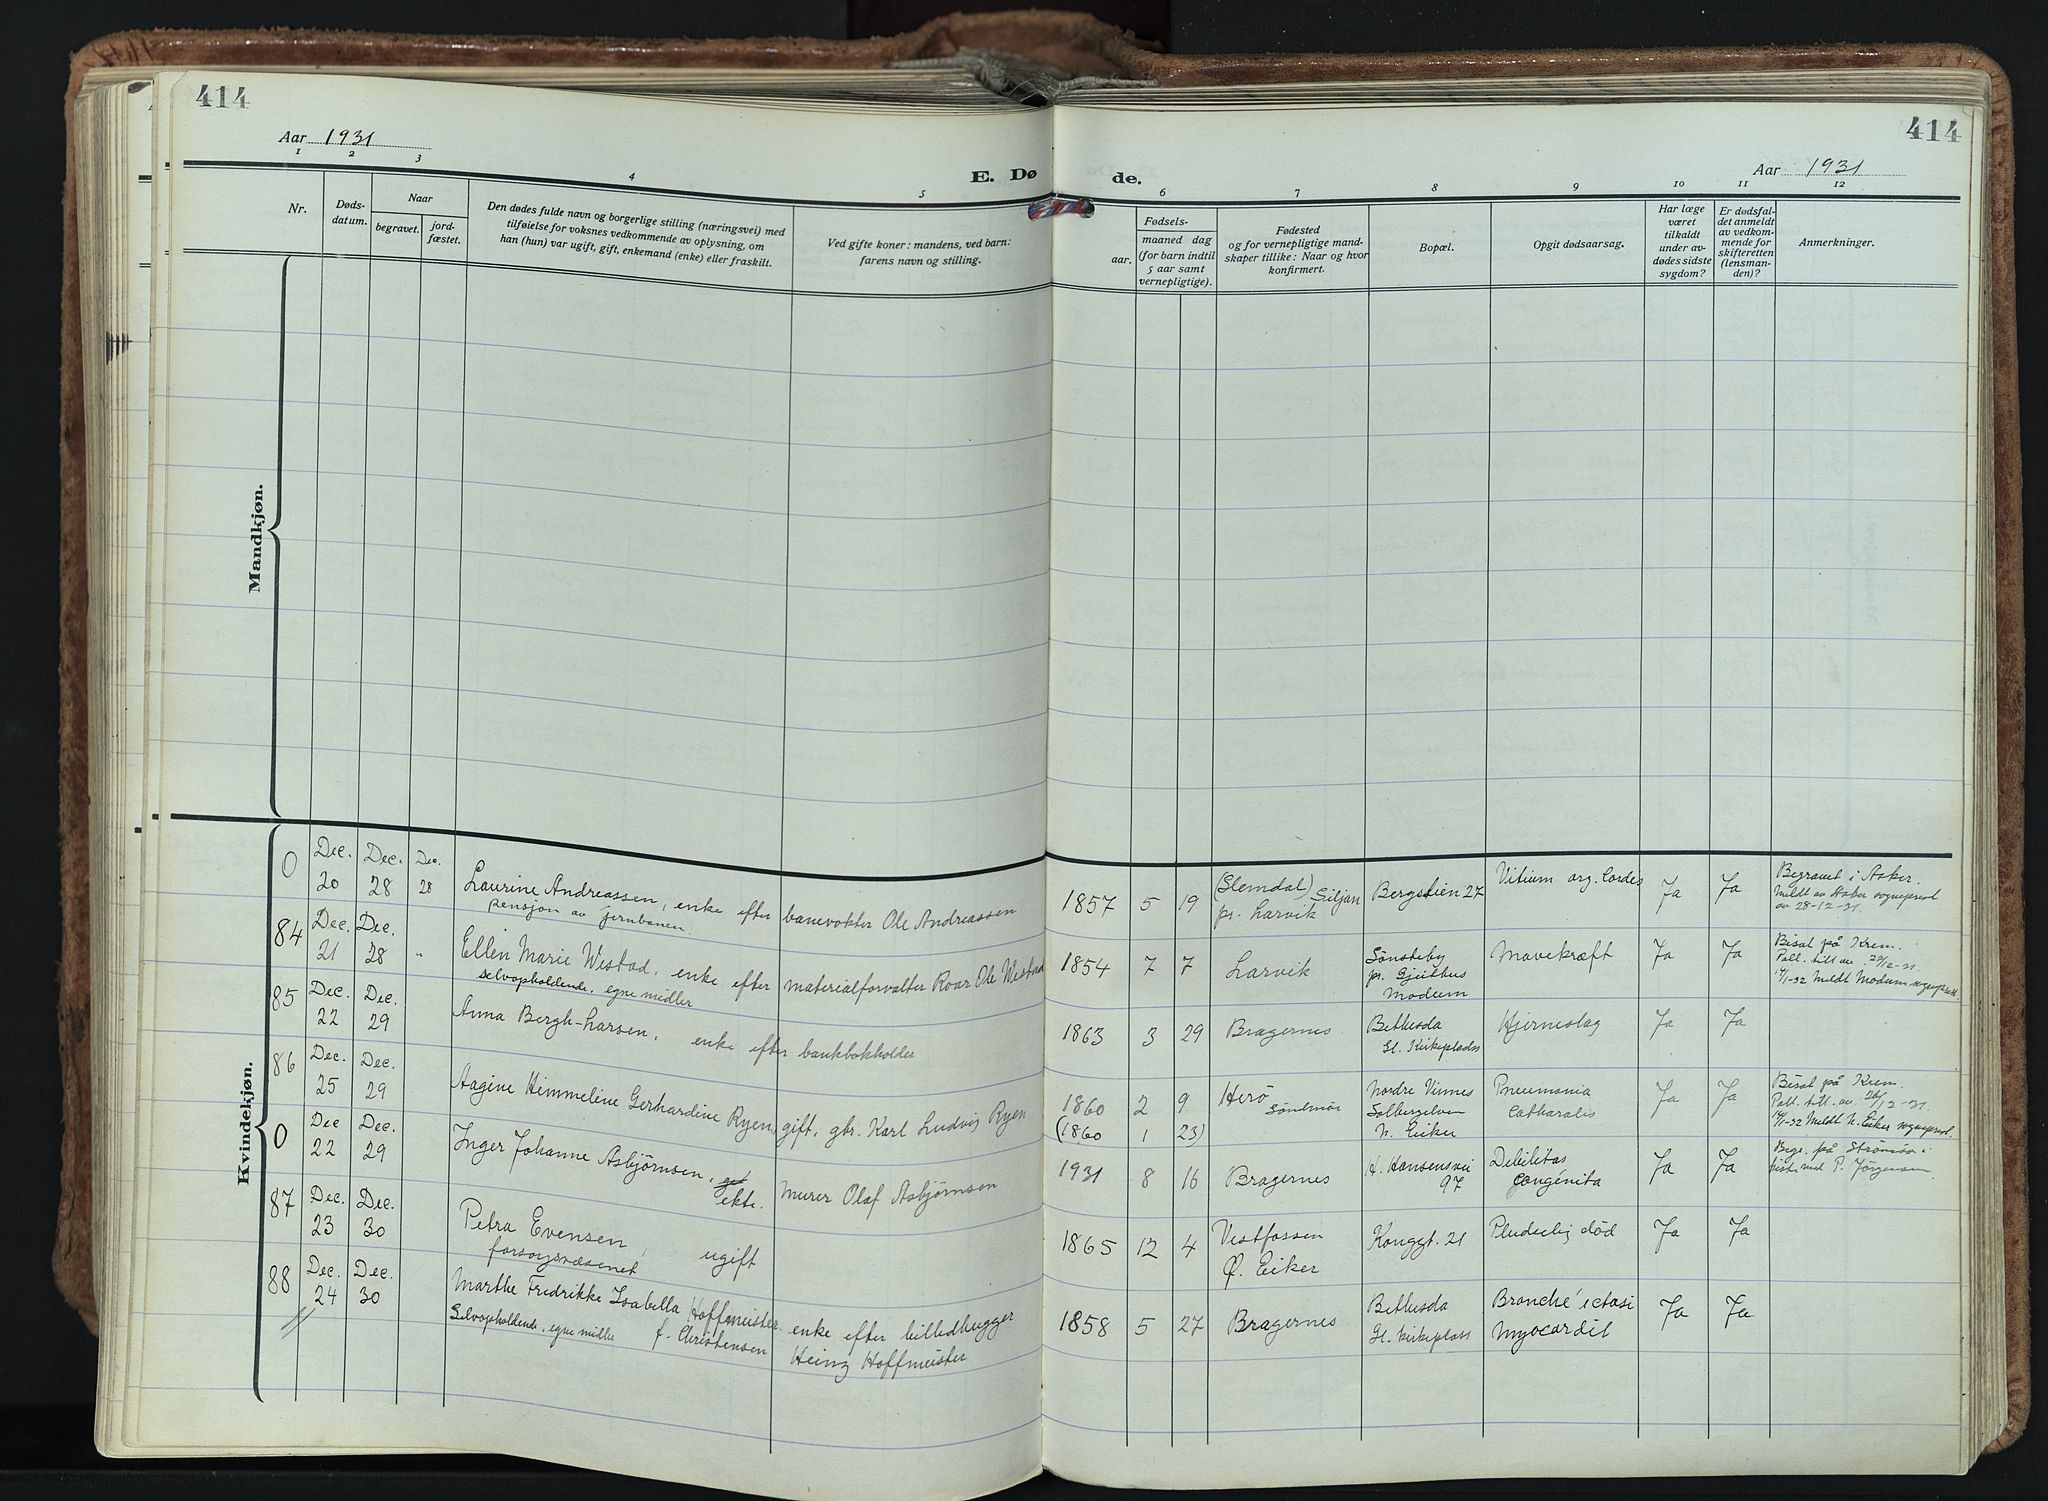 414
Aar 1931
1 2 3 4 5
E. Dø
Nr.
Døds-
datum.
Naar
begravet.
jord-
fæstet.
Den dødes fulde navn og borgerlige stilling (næringsvei) med
tilføielse for voksnes vedkommende av oplysning, om
han (hun) var ugift, gift, enkemand (enke) eller fraskilt.
Ved gifte koner: mandens, ved barn:
farens navn og stilling.
414
de.
Aar 1931
6 7 8 9 10 11 12
Fødsels-
aar.
maaned dag
(for barn indtil
5 aar samt
vernepligtige).
Fødested
og for vernepligtige mand-
skaper tillike: Naar og hvor
konfirmert.
Bopæl.
Opgit dødsaarsag.
Har læge
været
tilkaldt
under av-
dødes sidste
sygdom?
Er dødsfal-
det anmeldt
av vedkom-
mende for
skifteretten
(lensman-
den)?
Anmerkninger.
Mandkjøn.
Kvindekjøn.
0 Dec. 20 Dec. 28 Dec. 28 Laurine Andreassen, enke efter banevokter Ole Andreassen
pensjon av jernbanen.
1857 5 19 (Slemdal) Siljan
pr. Larvik
Bergstien 27
Vitium org. Cordis
Ja Ja
Begravet i Asker.
Meldt av Asker sogneprest
av 28-12-31.
84 Dec. 21 Dec. 28 " Ellen Marie Westad, enke efter materialforvalter Roar Ole Westad
selvopholdende, egne midler
1854 7 7 Larvik
Sønsteby
pr. Gjeithus
Modum
Mavekræft
Ja Ja
Bisat på Krem.
29/12-31.
14/1-32 Meldt Modum sogneprest.
85 Dec. 22 Dec. 29 Anna Bergh-Larsen, enke efter bankbokholder
1863 3 29 Bragernes
Bethesda
Gl. Kirkeplads
Hjerneslag
Ja Ja
86 Dec. 25 Dec. 29 Aagine Himmeline Gerhardine Ryen, gift, gbr. Karl Ludvig Ryen
1860 2 9 Herö
Søndmör
(1860 1 23)
Nordre Vinnes
Solbergelven
N. Eiker
Pneumonia
Catharalis
Ja Ja
Bisat på Krem.
28/12-31.
14/1-32 Meldt N. Eiker sogneprest.
0 Dec 22 Dec. 29 Inger Johanne Asbjörnsen, ekte. Murer Olaf Asbjörnsen
1931 8 16 Bragernes
H. Hansensvei
97
Debilitas
Congénita
Ja Ja
Begr. på Strömsø i
P. Jørgensen
87 Dec. 23 Dec. 30 Petra Evensen, ugift
forsorgsvæsenet
1865 12 4 Vestfossen
Ø. Eiker
Konggt. 21
Pludselig død
Ja Ja
88 Dec. 24 Dec. 30 Marthe Fredrikke Isabella Hoffmeister enke efter billedhugger
Selvopholdende, egne midler f. Christensen Heinz Hoffmeister
1858 5 27 Bragernes
Bethesda
Gl. kirkeplass
Bronchéictasi
Myocardit
Ja Ja